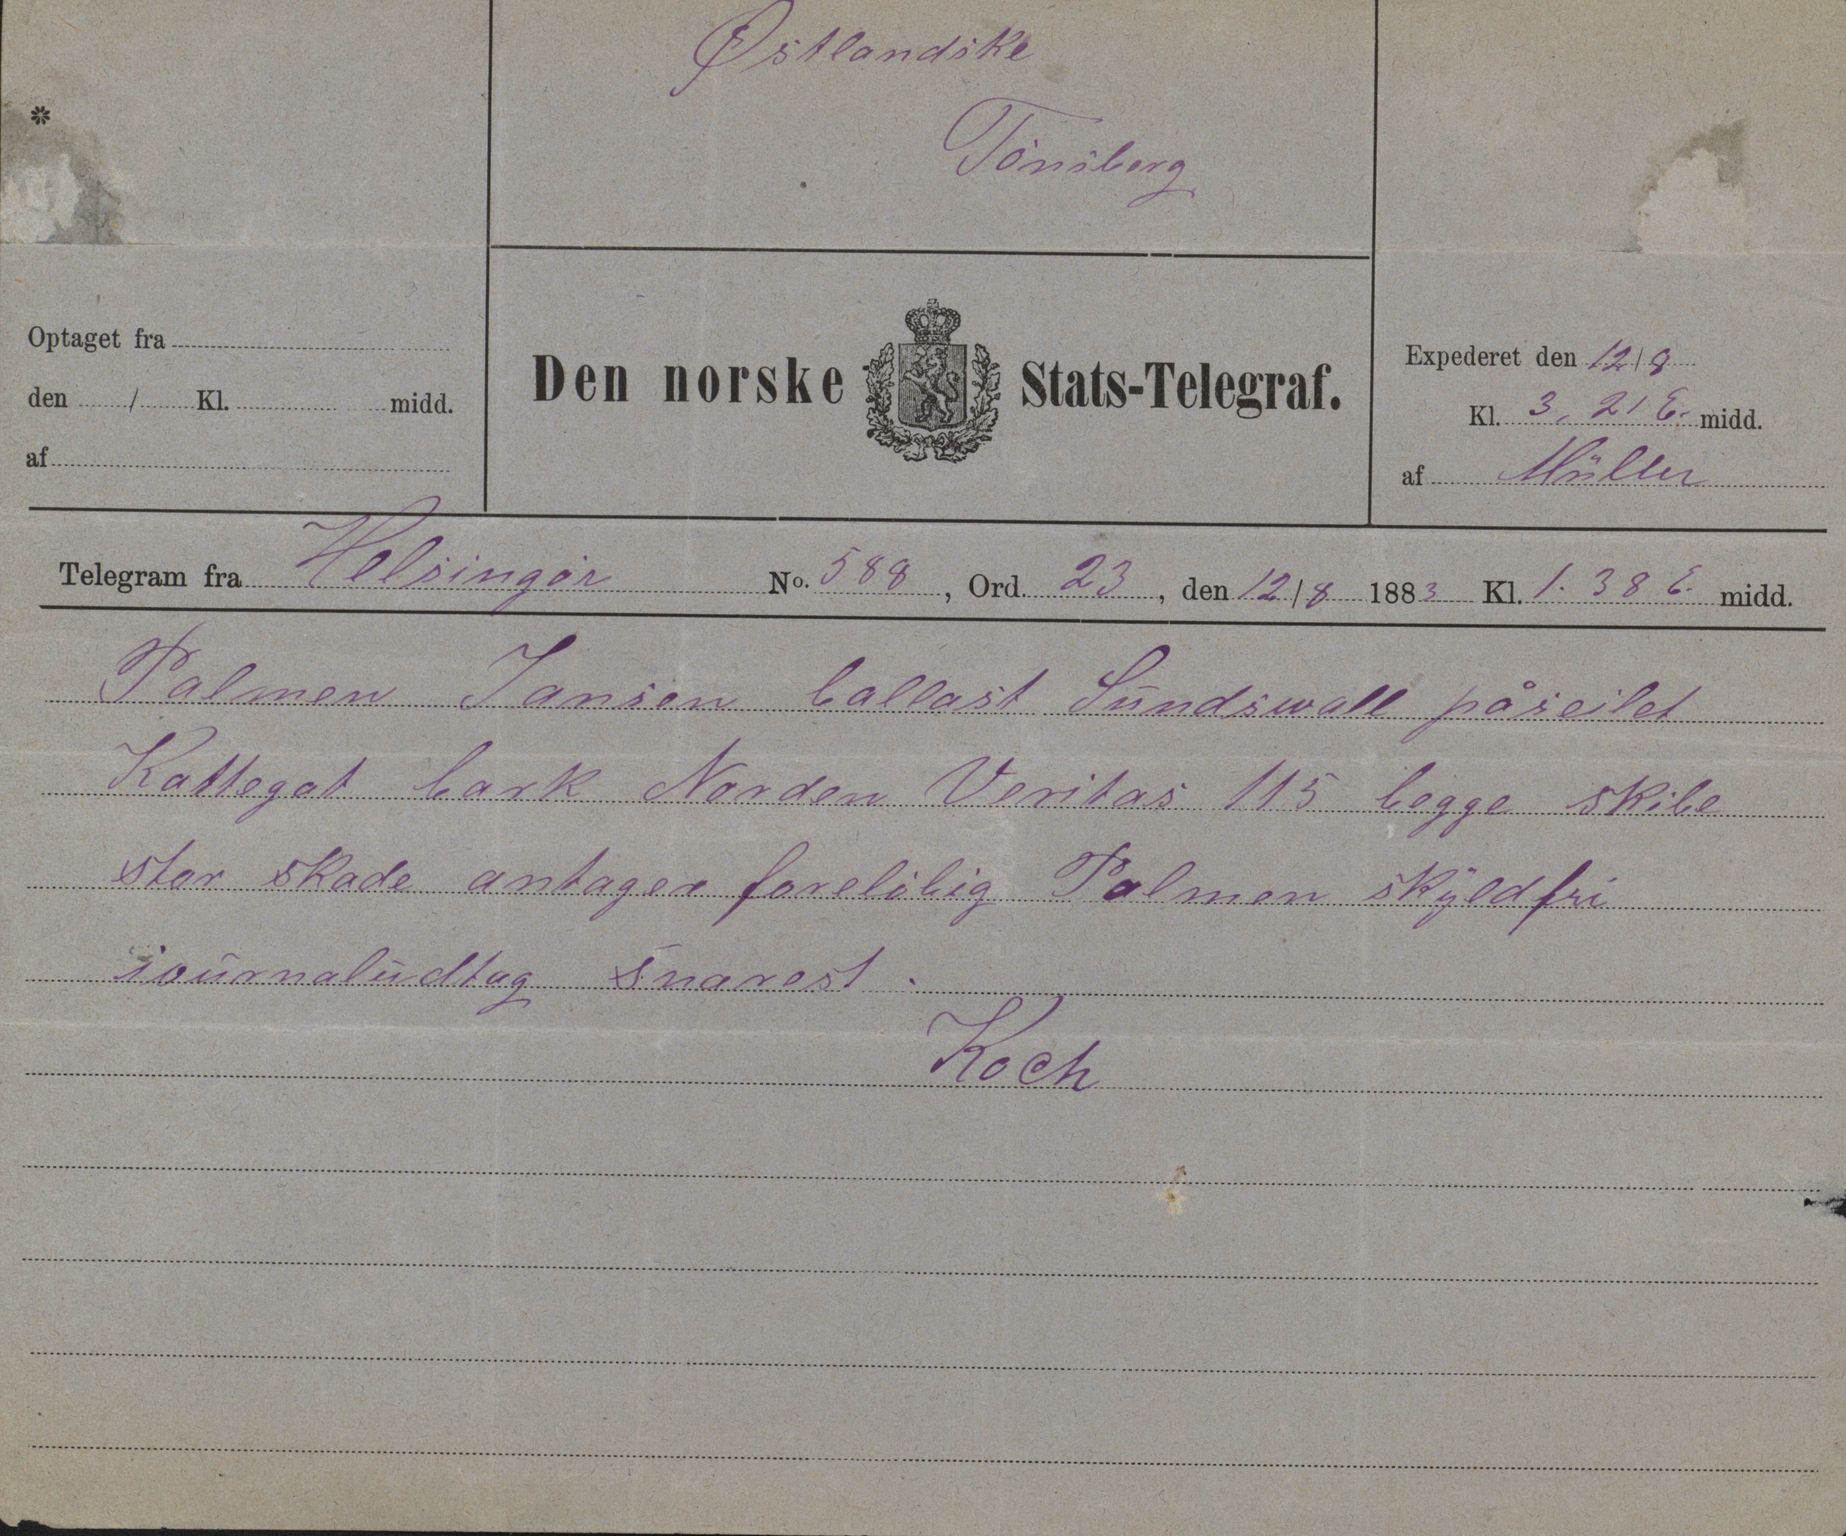 Østlandske
Tönsberg
*
Optaget fra
den / Kl. midd.
af
Den norske Stats-Telegraf.
Expederet den 12/8
Kl. 3,21 E. midd.
af Müller
Telegram fra Helsingör No. 588, Ord. 23, den 12/8 1883 Kl. 1.38 E. midd.
Palmen Jansen ballast Sundswall påseilet
Kattegat bark Norden Veritas 115 begge skibe
stor skade antager forelöbig Palmen skyldfri
iournaludtag snarest.
Koch